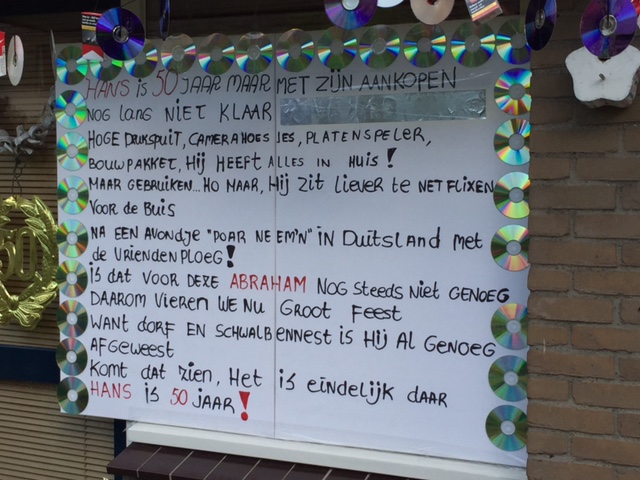 HANS is 50 JAAR MAAR MET ZIJN AANKOPEN
NOG LANG NIET KLAAR
HOGE DRUKSPUIT, CAMERAHOESJES, PLATENSPELER,
BOUWPAKKET, HIJ HEEFT ALLES IN HUIS!
MAAR GEBRUIKEN... HO MAAR, HIJ ZIT LIEVER te NETFLIXEN
VOOR de BUIS
NA EEN AVONDJE "POAR NEEM'N" IN DUITSLAND MET
de VRIENDENPLOEG!
IS DAT VOOR DEZE ABRAHAM NOG STEEDS NIET GENOEG
DAAROM VIEREN WE NU GROOT FEEST
WANT DORF EN SCHWALBENNEST IS HIJ AL GENOEG
AFGEWEEST
KOMT DAT ZIEN, HET IS EINDELIJK DAAR
HANS IS 50 JAAR!
50